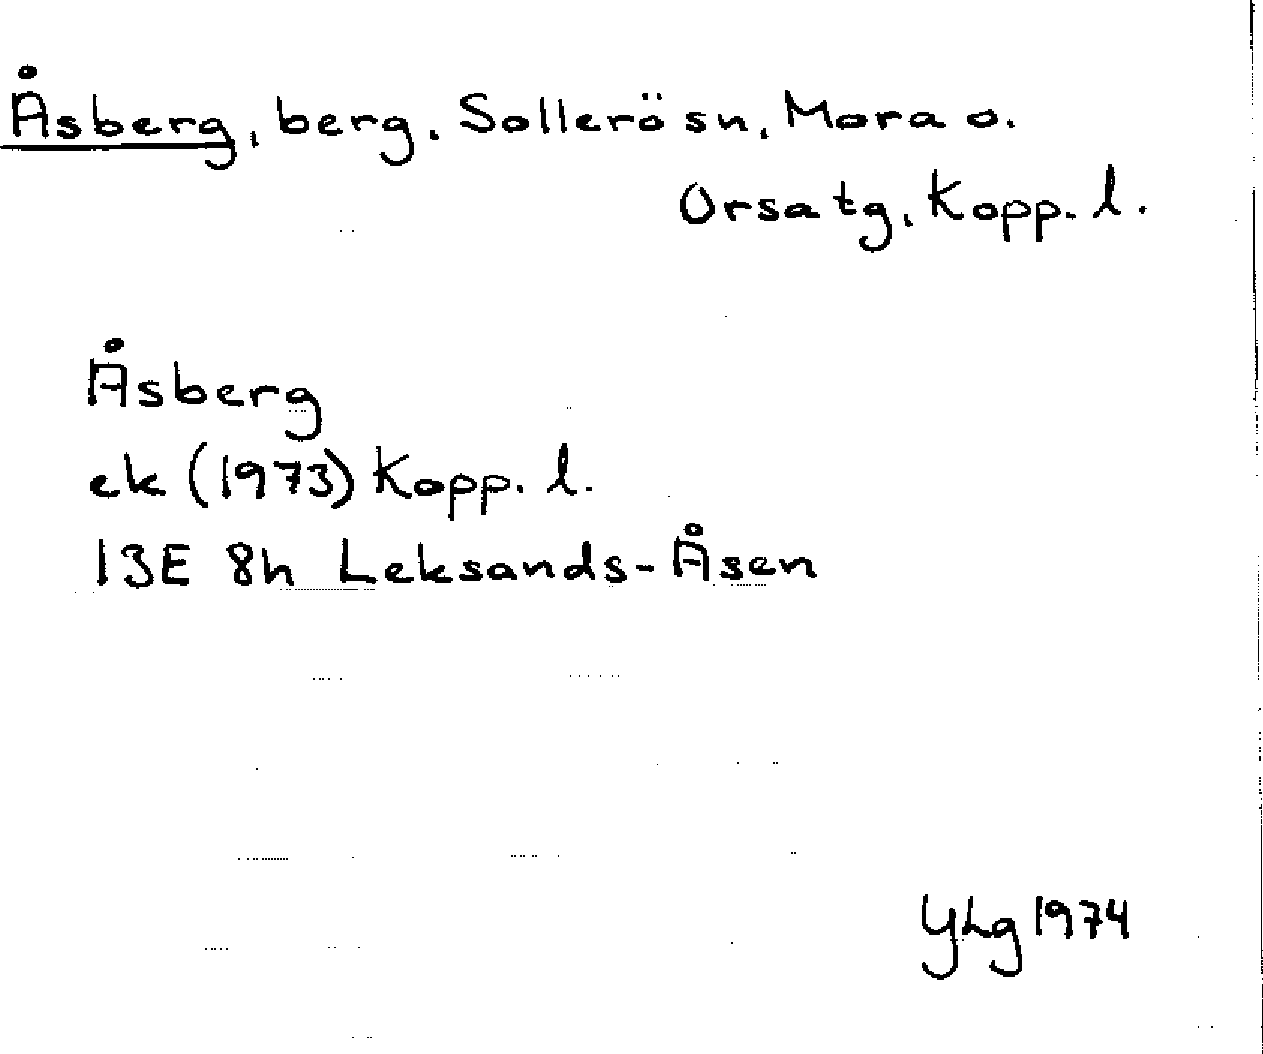 Åsberg, berg. Sollerö sn, Mora o.
Orsa tg, Kopp. l.
Åsberg
ek (1973) Kopp. l.
13E 8h Leksands-Åsen
YLg 1974